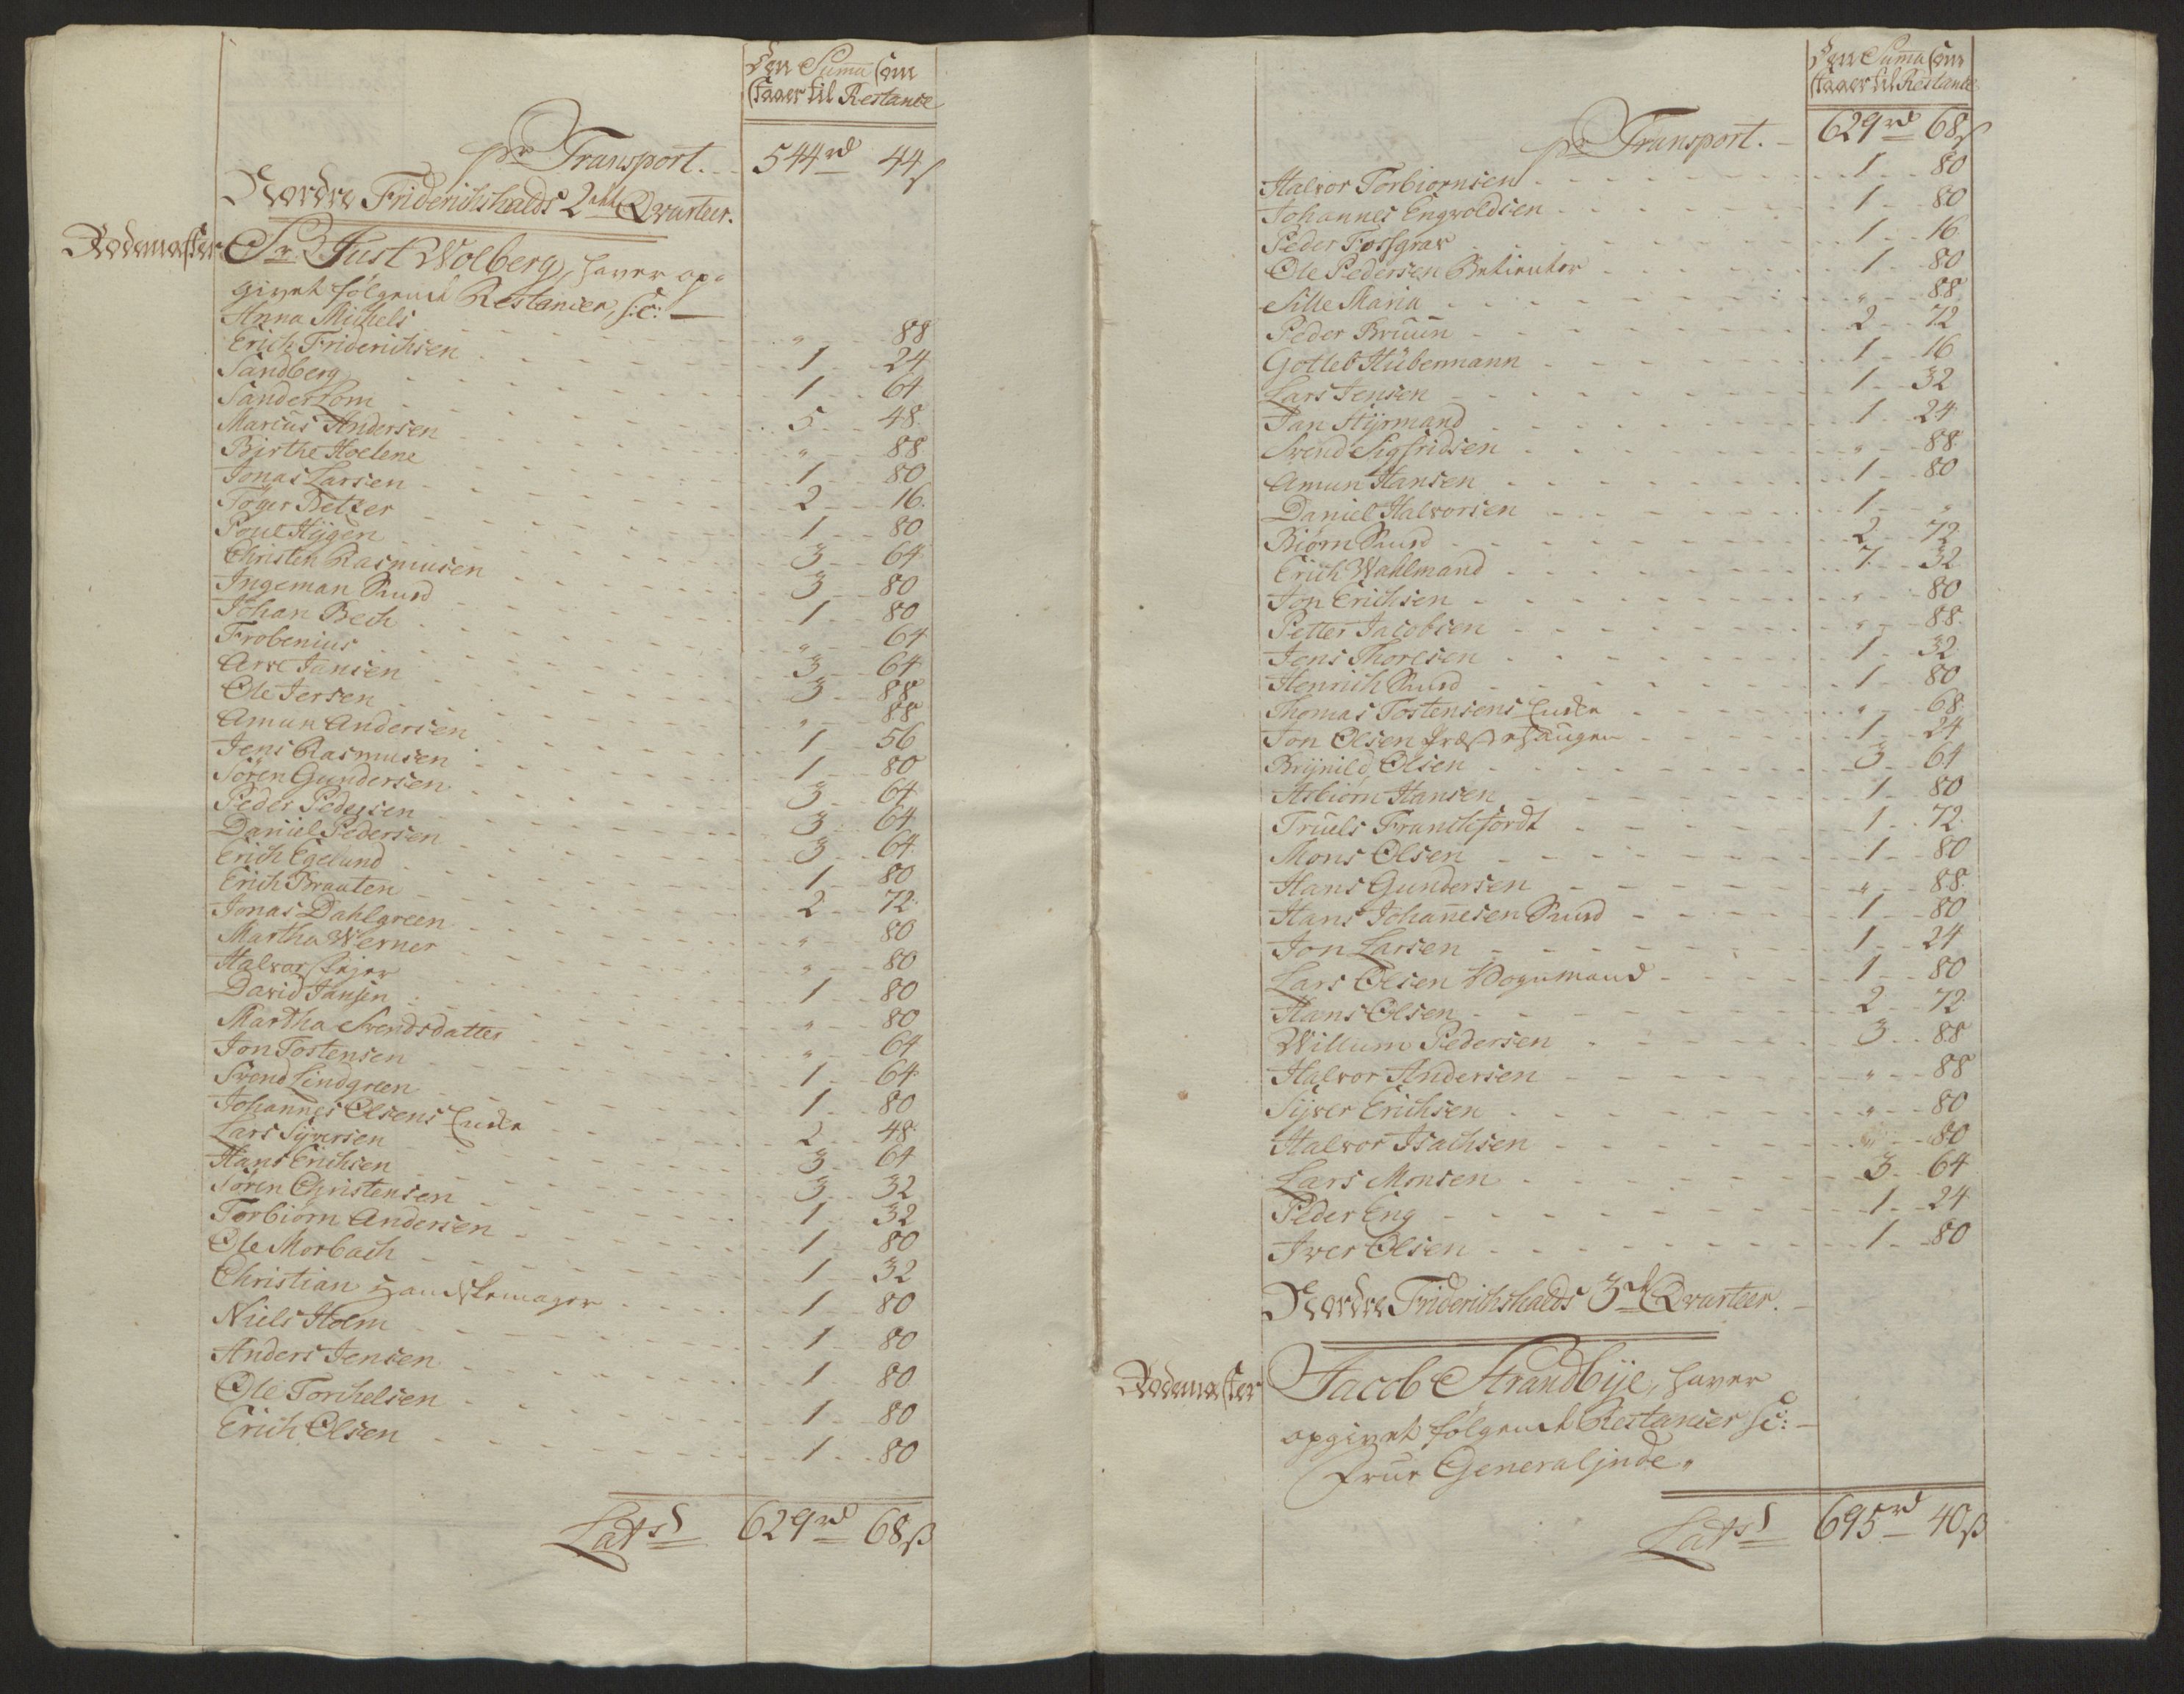 Den Summa som
staaer til Restance
pr Transport. 544 rd 44 ß
Nordre Friderichshalds 2det Qvarteer.
Rodemester Sr. Just Wolberg, haver op-
givet følgende Restancer, sc:
Anna Michels " 88
Erich Friderichsen 1 24
Sandberg 1 64
Sander Lom 5 48
Marcus Andersen " 88
Birthe Hoelene 1 80
Jonas Larsen 2 16
Töger Betzer 1 80
Poul Hygen 3 64
Christen Rasmusen 3 80
Ingeman Snurd 1 80
Johan Bech " 64
Frobenius 3 64
Arve Jansen 3 88
Ole Jersen " 88
Amun Andersen 1 56
Jens Rasmusen 1 80
Sören Gundersen 3 64
Peder Pedersen 3 64
Daniel Pedersen 3 64
Erich Egelund 1 80
Erich Braaten 2 72
Jonas Dahlgreen " 80
Martha Werner " 80
Halvor Skejer 1 80
David Jansen " 80
Martha Svendsdatter " 64
Jon Tostensen 1 64
Svend Lindgreen 1 80
Johannes Olsens Encke 2 48
Lars Syversen 3 64
Hans Erichsen 3 32
Sören Christensen 1 32
Torbiörn Andersen 1 80
Ole Morbach 1 32
Christian Handskemager 1 80
Niels Holm 1 80
Anders Jensen 1 80
Ole Torchelsen 1 80
Erich Olsen 1 80
Lats 629 rd 68 ß
Den Summa som
staaer til Restance
pr Transport. 629 rd 68 ß
Halvor Torbiornsen 1 80
Johannes Engvoldsen 1 80
Peder Fossgrav 1 16
Ole Pedersen Betienter 1 80
Sille Maria " 88
Peder Bruun 2 72
Gotleb Hübermann 1 16
Lars Jensen 1 32
Jan Styrmand 1 24
Svend Sigfridsen " 88
Amun Hansen 1 80
Daniel Halvorsen 1 "
Biörn Snurd 2 72
Erich Wahlmand 7 32
Jon Erichsen " 80
Petter Jacobsen " 88
Jens Thoresen 1 32
Henrich Snurd 1 80
Thomas Tostensens Encke " 68
Jon Olsen Præstehaugen 1 24
Brynild Olsen 3 64
Asbiörn Hansen 1 80
Truels Franckfordt 1 72
Mons Olsen 1 80
Hans Gundersen " 88
Hans Johanesen Snurd 1 80
Jon Larsen 1 24
Lars Olsen Vognmand 1 80
Hans Olsen 2 72
Willum Pedersen 3 88
Halvor Andersen " 88
Syver Erichsen " 80
Halvor Isachsen " 80
Lars Monsen 3 64
Peder Eng 1 24
Iver Olsen 1 80
Nordre Friderichshalds 3de Qvarteer.
Rodemester Jacob Strandbye, haver
opgivet følgende Restancer sc:
Frue Generalinde "
Lats 695 rd 40 ß